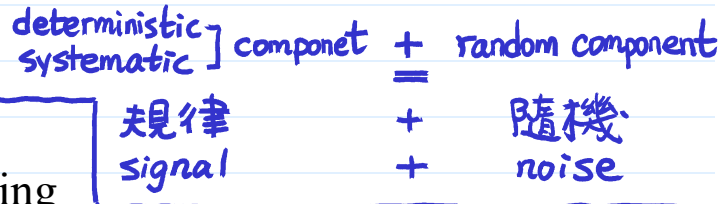 deterministic
systematic ] componet + random component
規律 + 隨機
signal + noise
ing